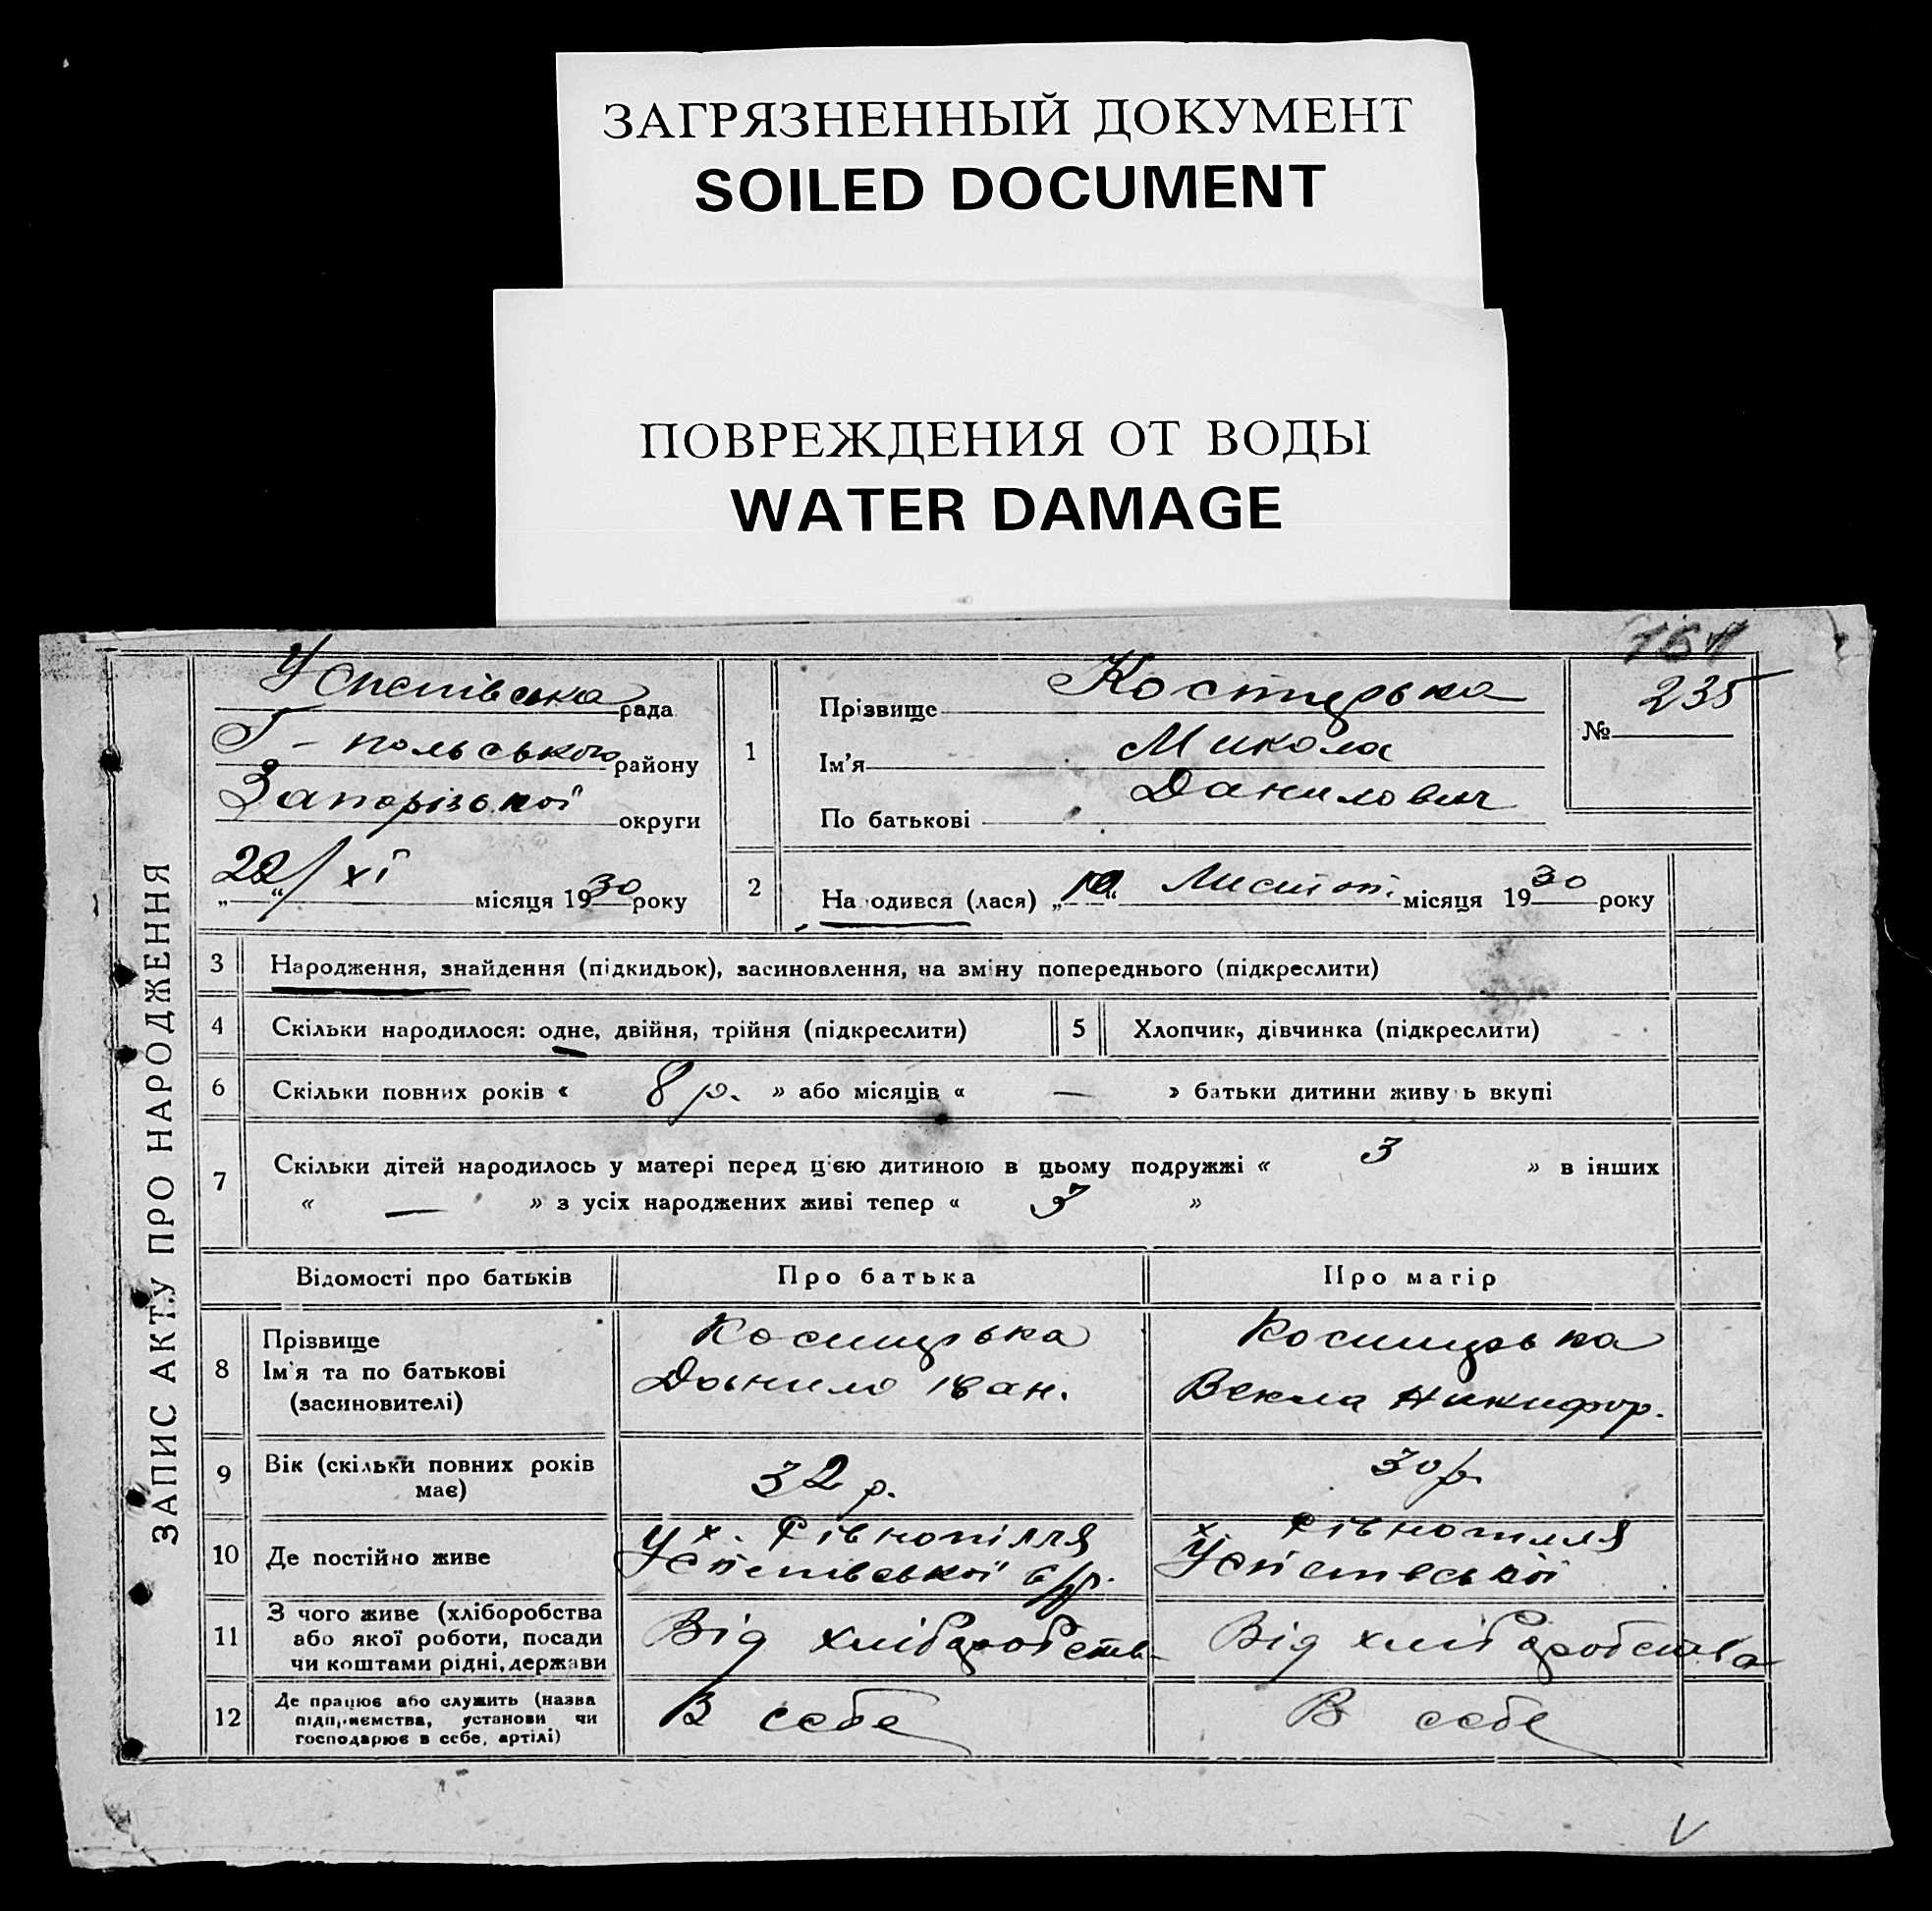 ЗАГРЯЗНЕННЫЙ ДОКУМЕНТ
SOILED DOCUMENT
ПОВРЕЖДЕНИЯ ОТ ВОДЫ
WATER DAMAGE
ЗАПИС АКТУ ПРО НАРОДЖЕННЯ
рада
Г-польського району
Запорізької округи
22/XI місяця 1930 року
1
Прізвище
Ім'я Микола
По батькові Данилович
№ 235
2
На одився (лася) „10“ Листоп. місяця 1930 року
3 Народження, знайдення (підкидьок), засиновлення, на зміну попереднього (підкреслити)
4 Скільки народилося: одне, двійня, трійня (підкреслити) 5 Хлопчик, дівчинка (підкреслити)
6 Скільки повних років « 8 р. » або місяців « — » батьки дитини живу ь вкупі
7 Скільки дітей народилось у матері перед цією дитиною в цьому подружжі « 3 » в інших
« — » з усіх народжених живі тепер « 3 »
Відомості про батьків Про батька Про матір
8 Прізвище
Ім'я та по батькові
(засиновителі)
Данило Іван.
Векла Никифор.
9 Вік (скільки повних років
має)
32 р.
30 р.
10 Де постійно живе
х. Рівнопілля
х. Рівнопілля
11 З чого живе (хліборобства
або якої роботи, посади
чи коштами рідні, держави
Від хліборобств
Від хліборобства
12 Де працює або служить (назва
підприємства, установи чи
господарює в себе, артілі)
В себе
В себе